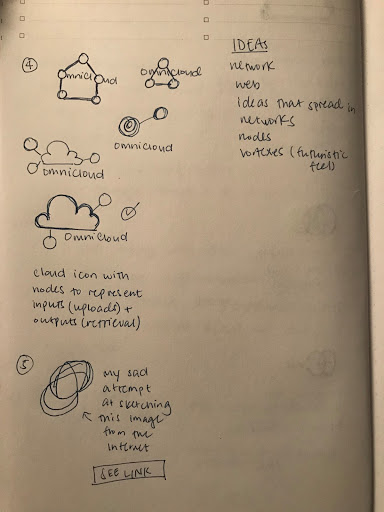 ④
omnicloud
omnicloud
omnicloud
omnicloud
omnicloud
cloud icon with
nodes to represent
inputs (uploads) +
outputs (retrieval)
⑤
my sad
attempt
at sketching
this image
from the
internet
SEE LINK
IDEAS
network
web
ideas that spread in
networks
nodes
vortexes (futuristic
feel)